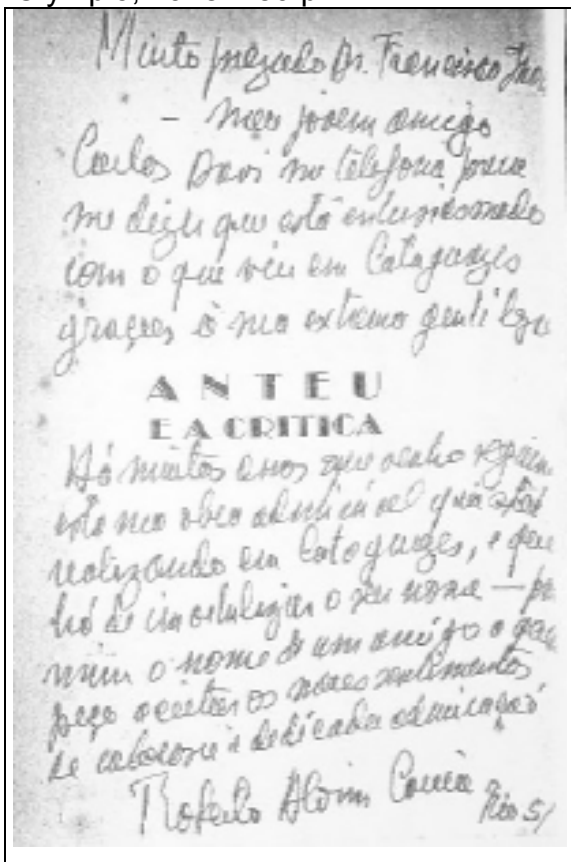 Muito prezado Dr. Francisco
— meu jovem amigo
Carlos Davi me telefona para
me dizer que está entusiasmado
com o que viu em Cataguazes
graças à sua extrema gentileza
ANTEU
E A CRITICA
Há muitos anos que venho
esta sua obra admirável que está
realizando em Cataguazes, e que
há de imortalizar o seu nome —
mim o nome de um amigo a que
peço aceitar os meus sentimentos
de calorosa e dedicada admiração
Roberto Alvim Corrêa Rio 5/